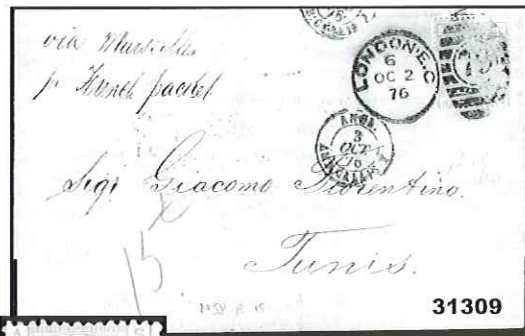 via Marseilles
pr French packet
LONDON E.C
6
OC 2
76
ANGL.
3
OCT
76
Sigr. Giacomo Fiorentino.
15
Tunis.
31309